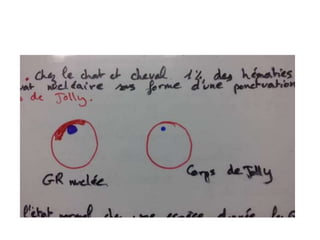 . Chez le chat et cheval 1% des hématies
nucléaire sous forme d'une ponctuation
de Jolly.
GR nuclée
Corps de Jolly
l'état normal